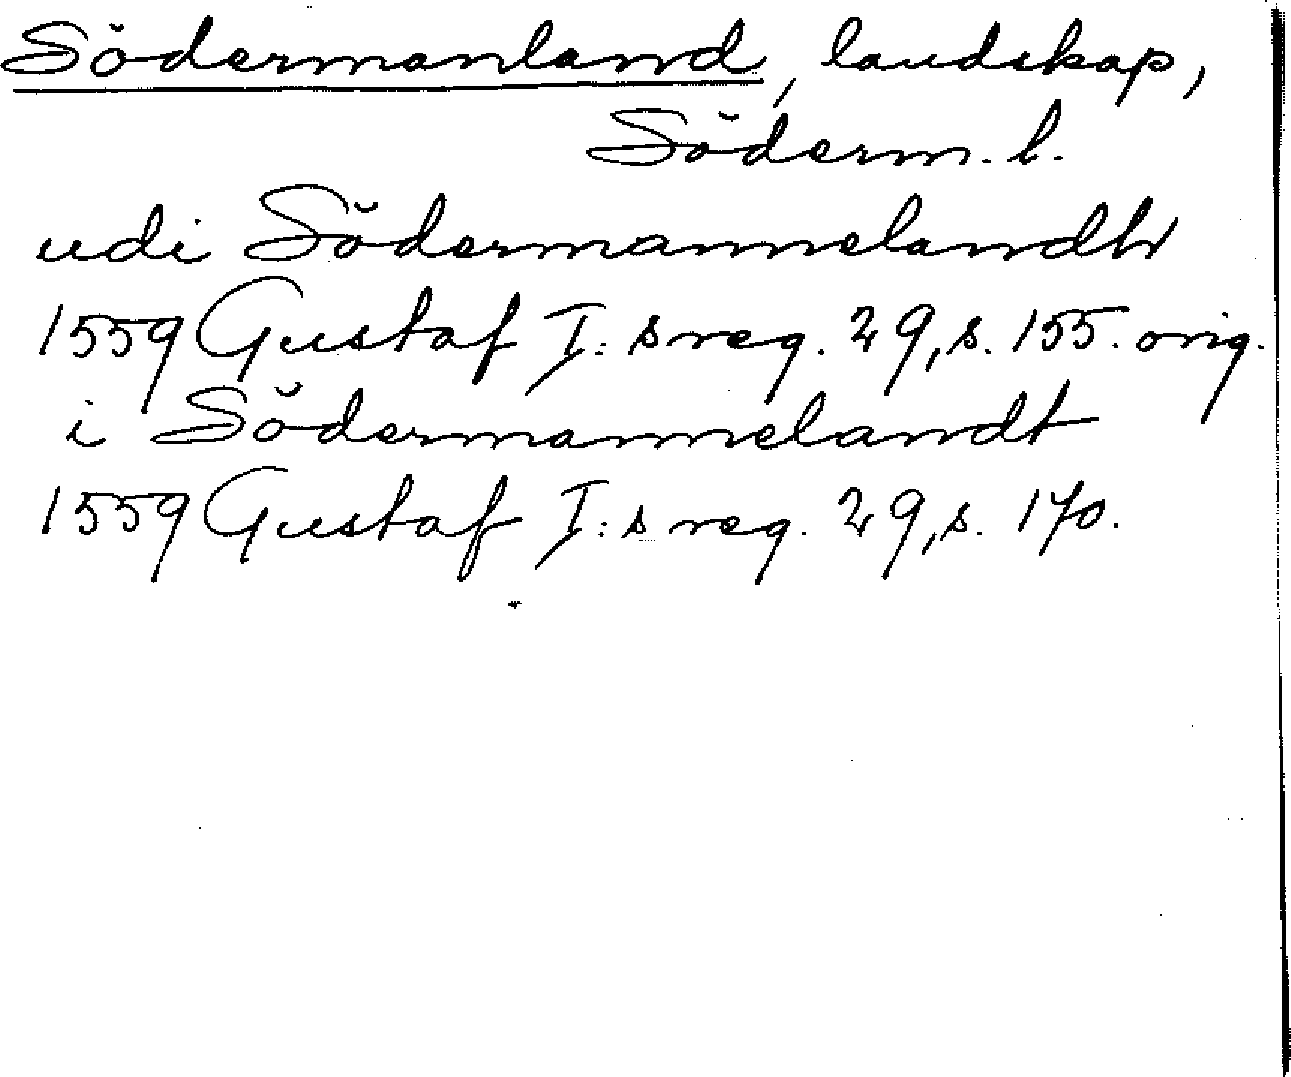 Södermanland, landskap,
Söderm. l.
udi Södermannelandh
1559 Gustaf I:s reg. 29, s. 155. orig.
i Södermannelandt
1559 Gustaf I:s reg. 29, s. 170.